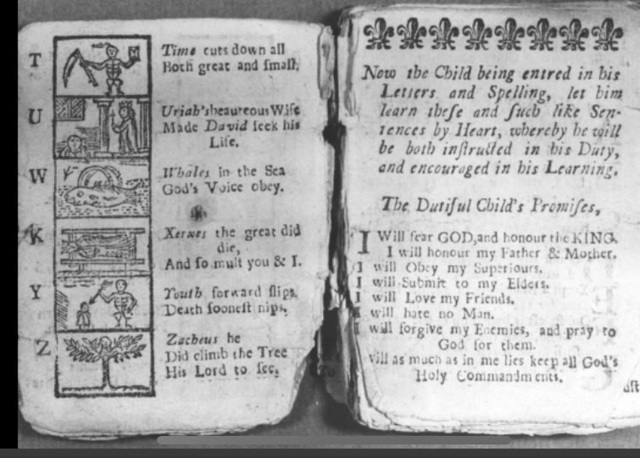 T
Time cuts down all
Both great and ſmall.
U
Uriah's beauteous Wife
Made David ſeek his
Life.
W
Whales in the Sea
God's Voice obey.
X
Xerxes the great did
die,
And ſo muſt you & I.
Y
Youth forward ſlips
Death ſooneſt nips.
Z
Zacheus he
Did climb the Tree
His Lord to ſee,
Now the Child being entred in his
Letters and Spelling, let him
learn theſe and ſuch like Sen-
tences by Heart, whereby he will
be both inſtructed in his Duty,
and encouraged in his Learning.
The Dutiful Child's Promiſes,
I Will fear GOD, and honour the KING.
I will honour my Father & Mother.
I will Obey my Superiours.
I will Submit to my Elders.
I will Love my Friends.
I will hate no Man.
I will forgive my Enemies, and pray to
God for them.
will as much as in me lies keep all God's
Holy Commandments.